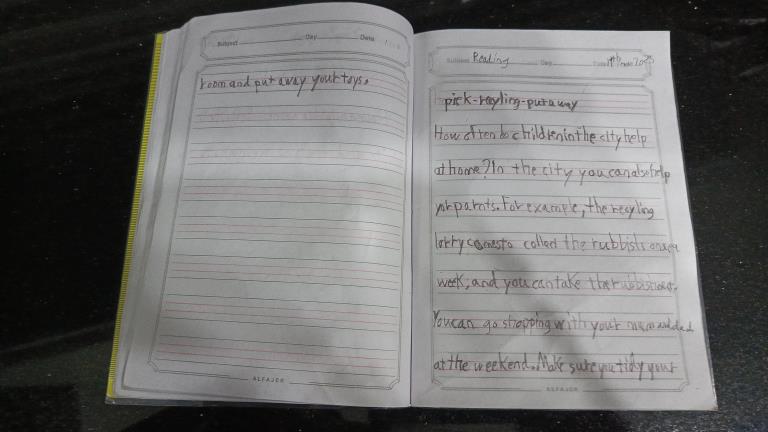 Subject Day Date
room and put away your toys.
ALFAJER
Subject Reading Day Date
pick-recyling-put away
How often do children in the city help
at home? In the city you can also help
your parnts. For example, the recyling
lorry comes to collect the rubbish once a
week, and you can take the rubbish out.
You can go shopping with your mum and dad
at the weekend. Make sure you tidy your
ALFAJER